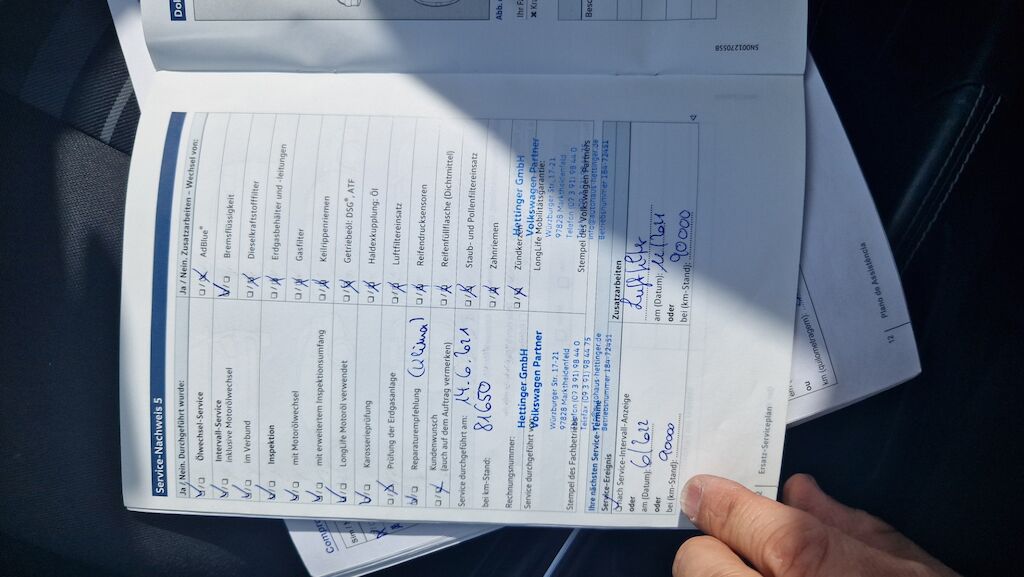 Service-Nachweis 5
Ja / Nein. Durchgeführt wurde:
Ölwechsel-Service
Intervall-Service
inklusive Motorölwechsel
im Verbund
Inspektion
mit Motorölwechsel
mit erweitertem Inspektionsumfang
LongLife Motoröl verwendet
Karosserieprüfung
Prüfung der Erdgasanlage
Reparaturempfehlung (Klima)
Kundenwunsch
(auch auf dem Auftrag vermerken)
Service durchgeführt am: 14.6.2021
bei km-Stand: 81650
Rechnungsnummer:
Service durchgeführt
Hettinger GmbH
Volkswagen Partner
Würzburger Str. 17-21
97828 Marktheidenfeld
Telefon (0 93 91) 98 44 0
Telefax (0 93 91) 98 44 75
Betriebsnummer 184-72451
Stempel des Fachbetriebs
Ihre nächsten Service-Termine
Service-Ereignis
nach Service-Intervall-Anzeige
oder
am (Datum): 6/2022
oder
bei (km-Stand): 90000
Ja / Nein. Zusatzarbeiten – Wechsel von:
AdBlue®
Bremsflüssigkeit
Dieselkraftstofffilter
Erdgasbehälter und -leitungen
Gasfilter
Keilrippenriemen
Getriebeöl: DSG®, ATF
Haldexkupplung: Öl
Luftfiltereinsatz
Reifendrucksensoren
Reifenfüllflasche (Dichtmittel)
Staub- und Pollenfiltereinsatz
Zahnriemen
Zündkerzen
LongLife Mobilitätsgarantie:
Hettinger GmbH
Volkswagen Partner
Würzburger Str. 17-21
97828 Marktheidenfeld
Telefon (0 93 91) 98 44 0
info@autohaus-hettinger.de
Betriebsnummer 184-72451
Stempel des Volkswagen Partners
Zusatzarbeiten
am (Datum):
oder
bei (km-Stand): 90000
Ersatz-Serviceplan
SN00127055B
Abb.
12
Plano de Assistência
ou
em (quilometragem)